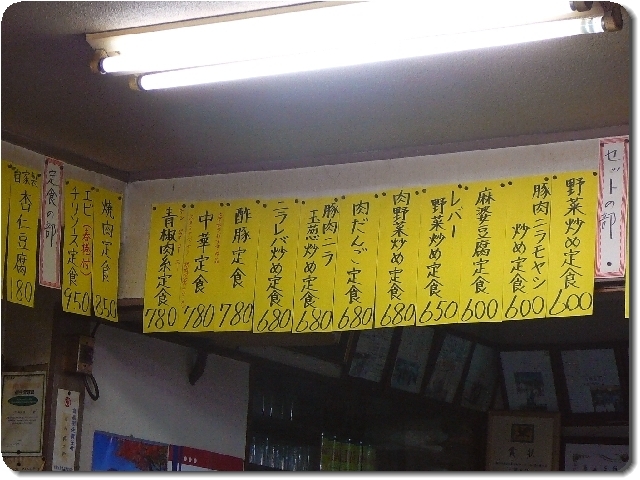 セットの部
野菜炒め定食
600
豚肉ニラモヤシ
炒め定食
600
麻婆豆腐定食
600
レバー
野菜炒め定食
650
肉野菜炒め定食
680
肉だんご定食
680
豚肉ニラ
玉葱炒め定食
680
ニラレバ炒め定食
680
酢豚定食
780
中華定食
780
青椒肉糸定食
780
定食の部
焼肉定食
850
エビ
チリソース定食
950
自家製
杏仁豆腐
180